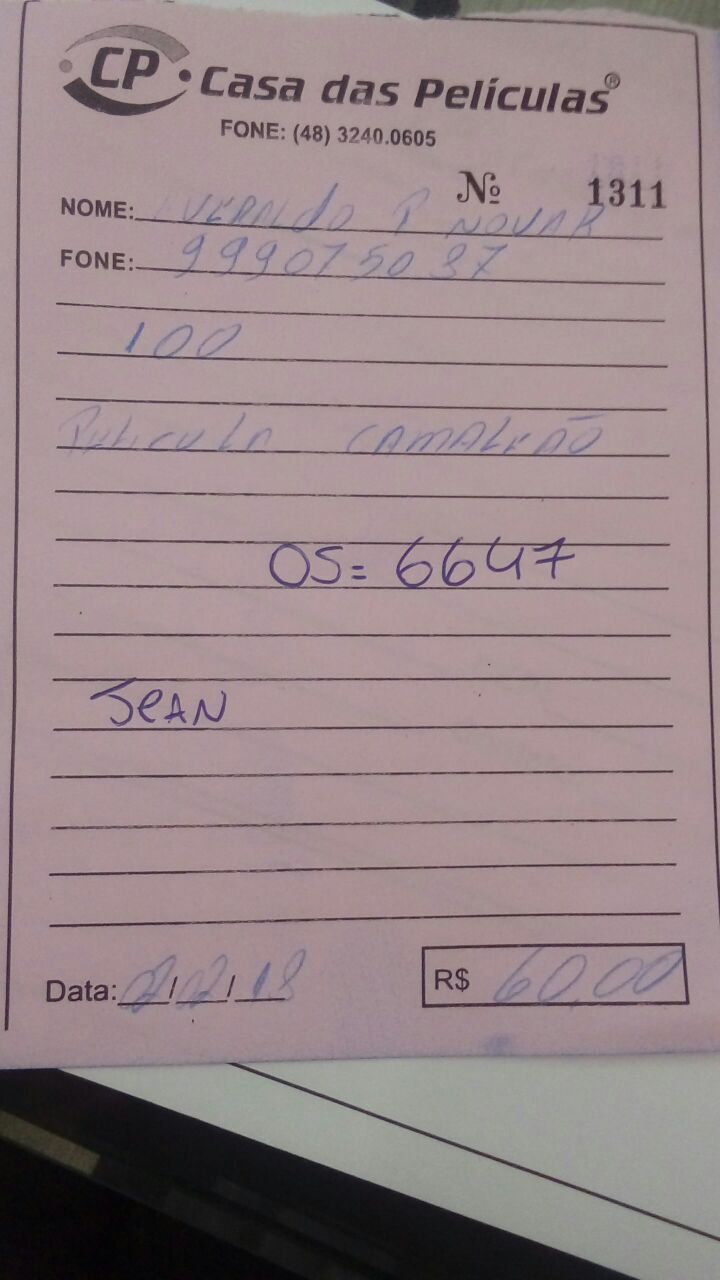 CP Casa das Películas®
FONE: (48) 3240.0605
Nº 1311
NOME: P NOVAR
FONE: 999075037
100
PELICULA CAMALEÃO
OS= 6647
JEAN
Data: / /18
R$ 60,00